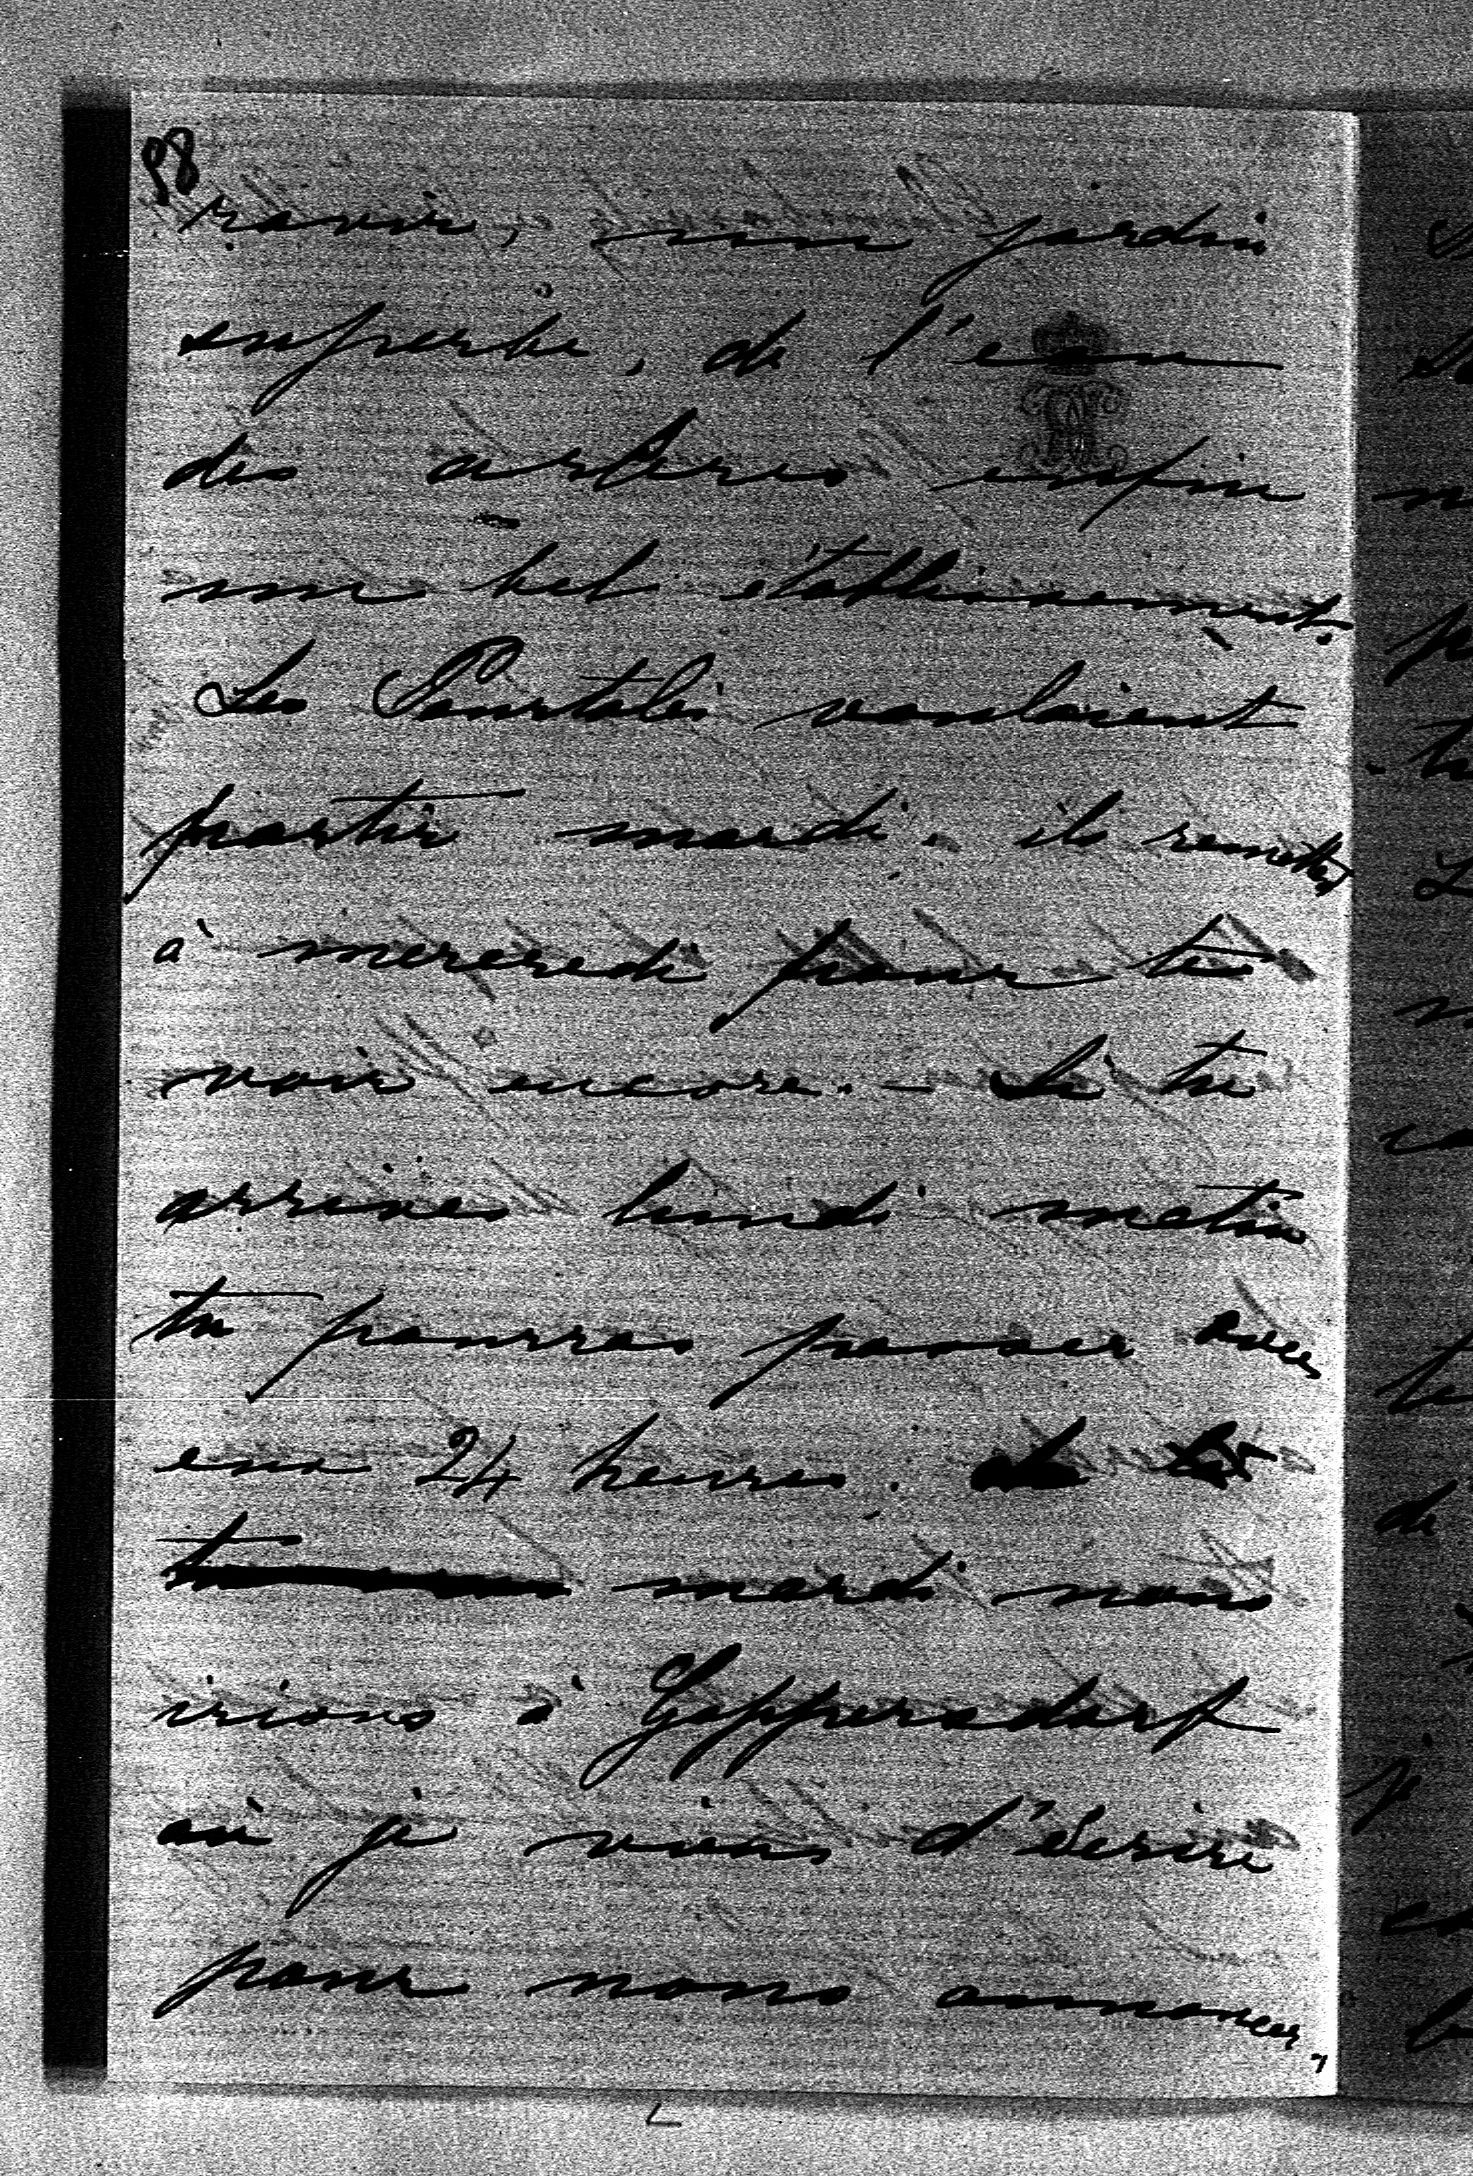 98
ravir, un jardin
superbe, de l'eau
des arbres enfin
un bel établissement.
Les Pourtalès voulaient
partir mardi. ils remettent
à mercredi pour te
voir encore. – Si tu
arrives lundi matin
tu pourras passer avec
eux 24 heures.
mardi nous
irions à Geppersdorf
où je viens d'écrire
pour nous annoncer,